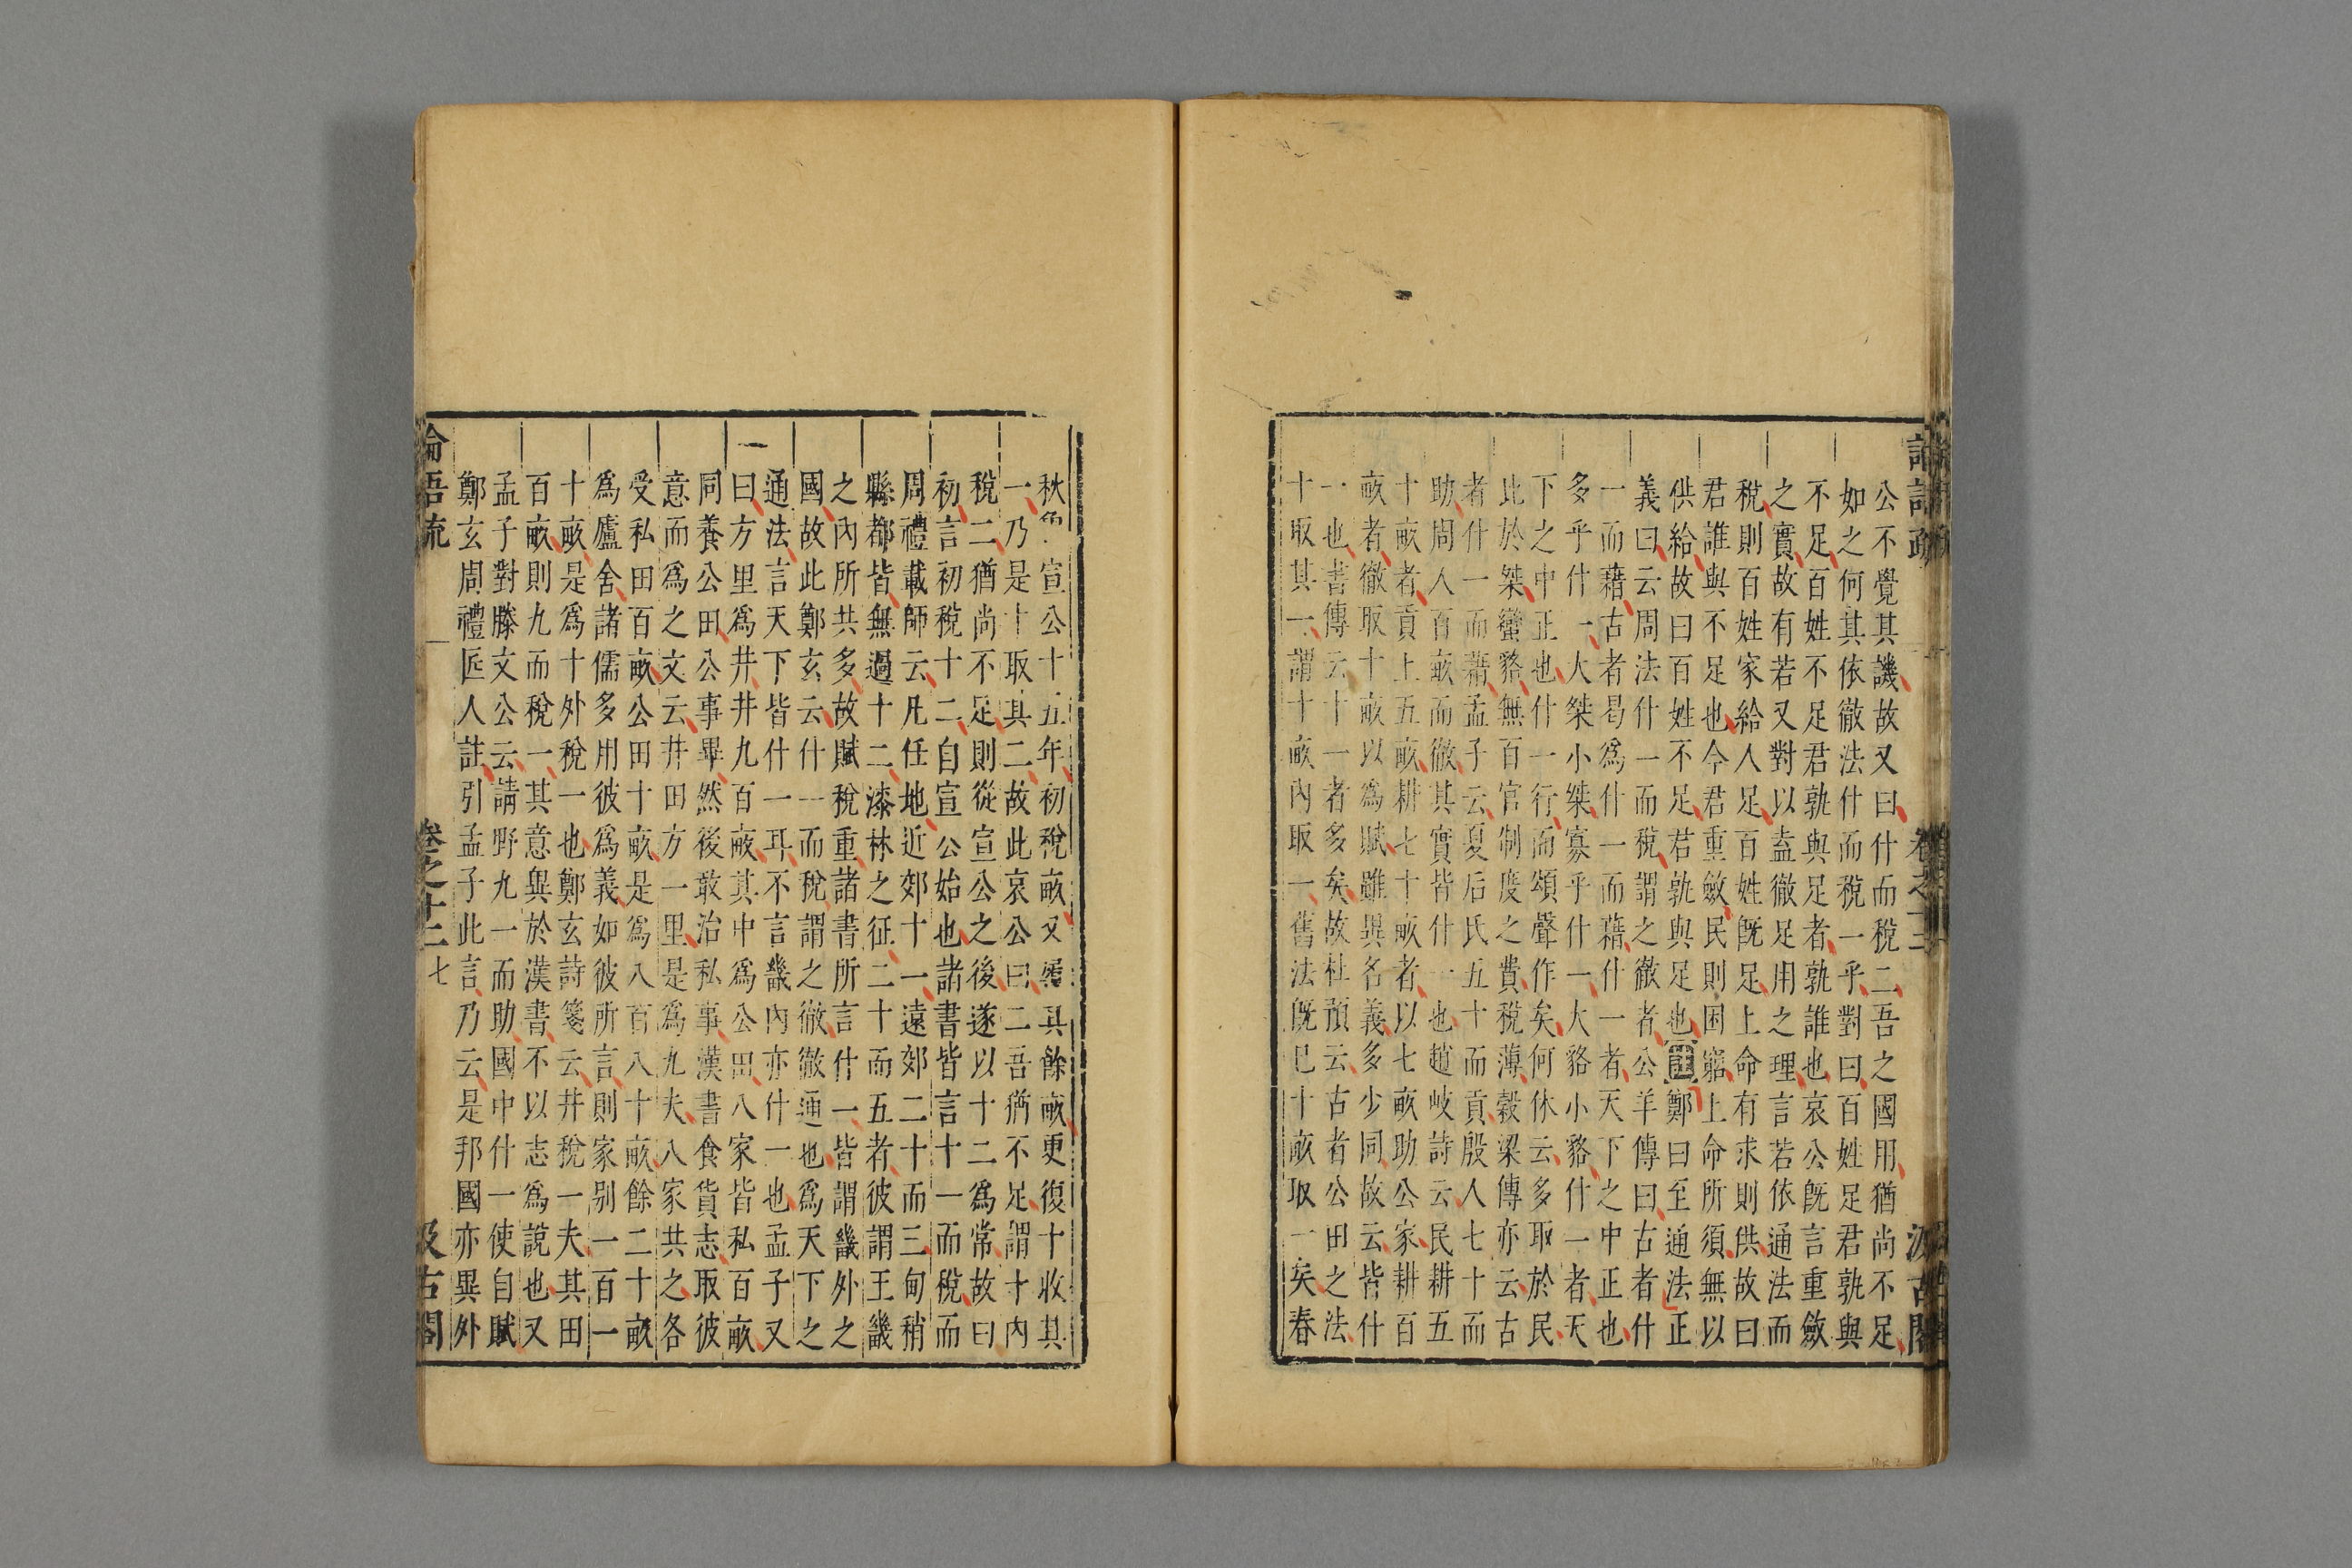 公不覺其譏故又曰什而稅二吾之國用猶尚不足
如之何其依徹法什而稅一乎對曰百姓足君孰與
不足百姓不足君孰與足者孰誰也哀公旣言重斂
之實故有若又對以盍徹足用之理言若依通法而
稅則百姓家給人足百姓旣足上命有求則供故曰
君誰與不足也今君重斂民則困窮上命所須無以
供給故曰百姓不足君孰與足也註鄭曰至通法正
義曰云周法什一而稅謂之徹者公羊傳曰古者什
一而藉古者曷爲什一而藉什一者天下之中正也
多乎什一大桀小桀寡乎什一大貉小貉什一者天
下之中正也什一行而頌聲作矣何休云多取於民
比於桀蠻貉無百官制度之費稅薄穀梁傳亦云古
者什一而藉孟子云夏后氏五十而貢殷人七十而
助周人百畝而徹其實皆什一也趙岐詩云民耕五
十畝者貢上五畝耕七十畝者以七畝助公家耕百
畝者徹取十畝以爲賦雖異名義多少同故云皆什
一也書傳云十一者多矣故杜預云古者公田之法
十取其一謂十畝內取一舊法旣已十畝取一矣春
秋魯宣公十五年初稅畝又履其餘畝更復十收其
一乃是十取其二故此哀公曰二吾猶不足謂十內
稅二猶尚不足則從宣公之後遂以十二爲常故曰
初言初稅十二自宣公始也諸書皆言十一而稅而
周禮載師云凡任地近郊十一遠郊二十而三甸稍
縣都皆無過十二漆林之征二十而五者彼謂王畿
之內所共多故賦稅重諸書所言什一皆謂畿外之
國故此鄭玄云什一而稅謂之徹徹通也爲天下之
通法言天下皆什一耳不言畿內亦什一也孟子又
曰方里爲井井九百畝其中爲公田八家皆私百畝
同養公田公事畢然後敢治私事漢書食貨志取彼
意而爲之文云井田方一里是爲九夫八家共之各
受私田百畝公田十畝是爲八百八十畝餘二十畝
爲廬舍諸儒多用彼爲義如彼所言則家別一百一
十畝是爲十外稅一也鄭玄詩箋云井稅一夫其田
百畝則九而稅一其意異於漢書不以志爲說也又
孟子對滕文公云請野九一而助國中什一使自賦
鄭玄周禮匠人註引孟子此言乃云是邦國亦異外
論語疏 卷之十二 七 汲古閣